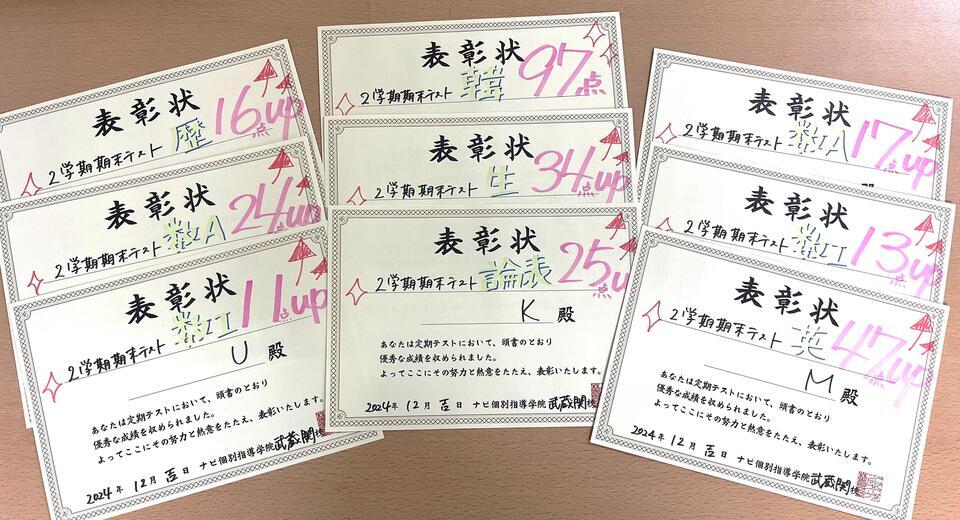 表彰状
2学期期末テスト 歴 16点up
表彰状
2学期期末テスト 数A 24点up
表彰状
2学期期末テスト 数II 11点up
U 殿
あなたは定期テストにおいて、頭書のとおり
優秀な成績を収められました。
よってここにその努力と熱意をたたえ、表彰いたします。
2024年 12月 吉日 ナビ個別指導学院 武蔵関校
表彰状
2学期期末テスト 韓 97点
表彰状
2学期期末テスト 生 34点up
表彰状
2学期期末テスト 論表 25点u
K 殿
あなたは定期テストにおいて、頭書のとおり
優秀な成績を収められました。
よってここにその努力と熱意をたたえ、表彰いたします。
2024年 12月 吉日 ナビ個別指導学院 武蔵関校
表彰状
2学期期末テスト 数A 17点up
殿
表彰状
2学期期末テスト 数II 13点up
表彰状
2学期期末テスト 英 47点up
M 殿
あなたは定期テストにおいて、頭書のとおり
優秀な成績を収められました。
よってここにその努力と熱意をたたえ、表彰いたします。
2024年 12月 吉日 ナビ個別指導学院 武蔵関校